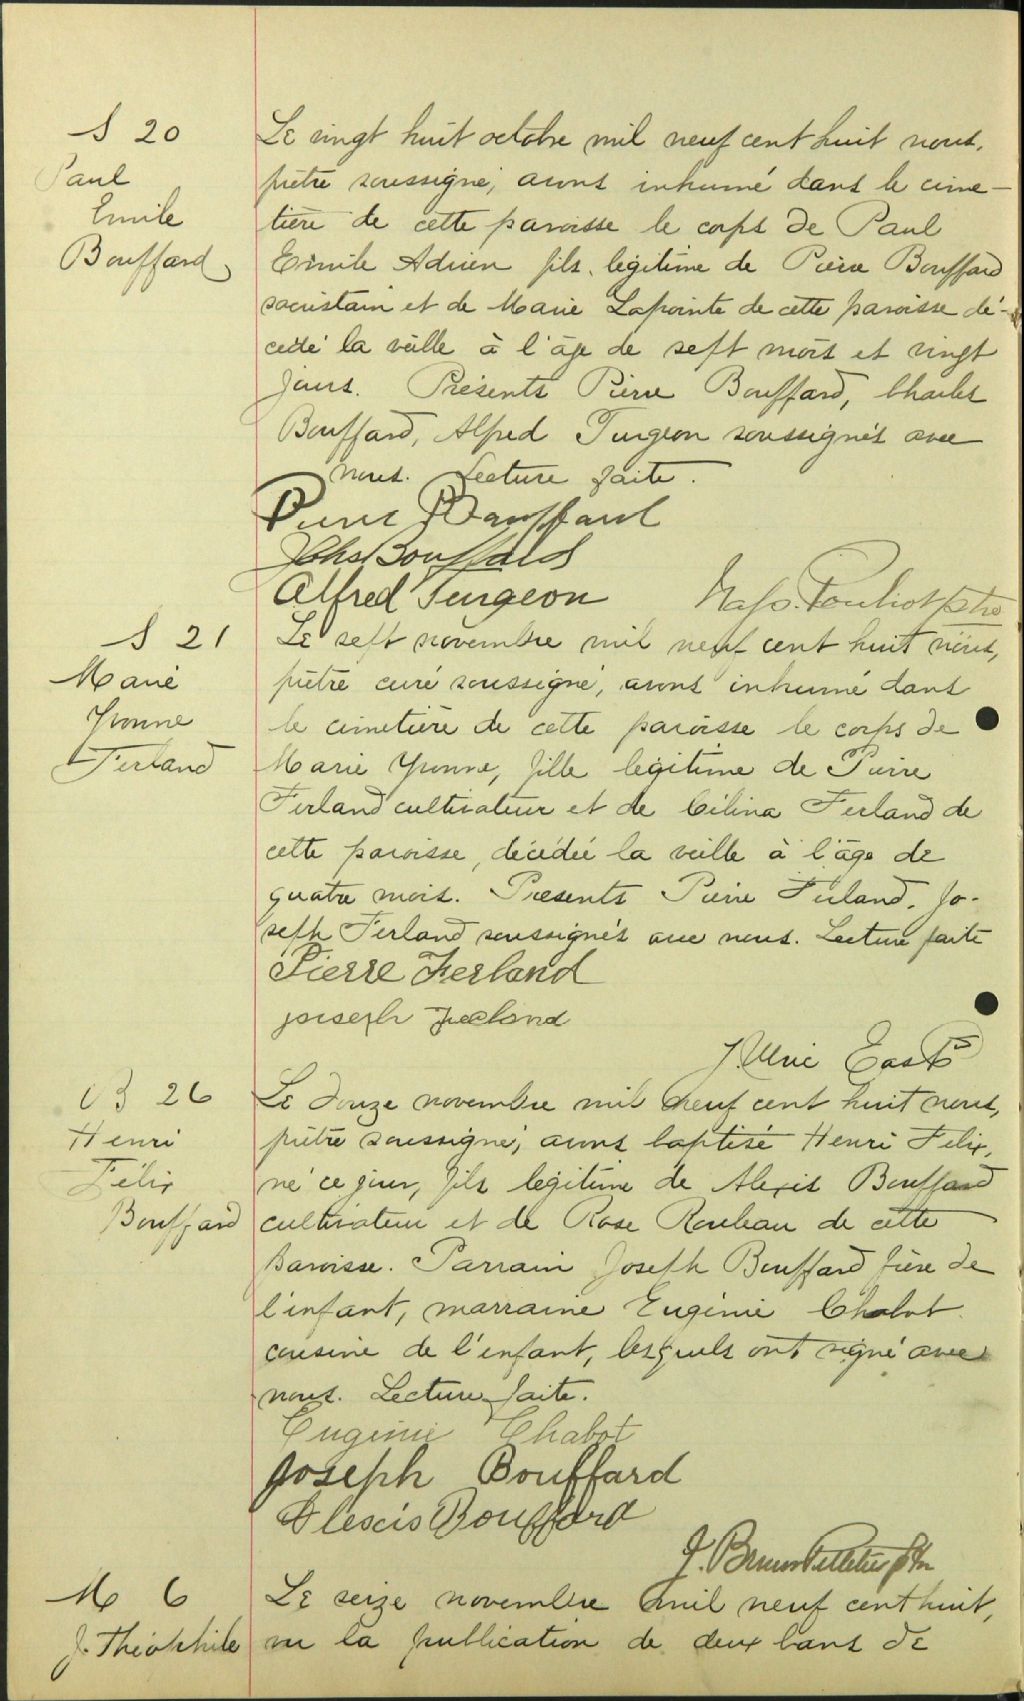 S 20
Paul
Emile
Bouffard
Le vingt huit octobre mil neuf cent huit nous,
prêtre soussigné, avons inhumé dans le cime-
tière de cette paroisse le corps de Paul
Emile Adrien fils légitime de Pierre Bouffard
sacristain et de Marie Lapointe de cette paroisse dé-
cédé la veille à l'âge de sept mois et vingt
jours. Présents Pierre Bouffard, Charles
Bouffard, Alfred Turgeon soussignés avec
nous. Lecture faite.
Pierre Bouffard
Chs Bouffard
Alfred Turgeon
Nap. Pouliot ptre
S 21
Marie
Yvonne
Ferland
Le sept novembre mil neuf cent huit nous,
prêtre curé soussigné, avons inhumé dans
le cimetière de cette paroisse le corps de
Marie Yvonne, fille légitime de Pierre
Ferland cultivateur et de Célina Ferland de
cette paroisse, décédée la veille à l'âge de
quatre mois. Présents Pierre Ferland, Jo-
seph Ferland soussignés avec nous. Lecture faite
Pierre Ferland
joseph Ferland
J. Ulric East
B 26
Henri
Félix
Bouffard
Le douze novembre mil neuf cent huit nous,
prêtre soussigné, avons baptisé Henri Félix,
né ce jour, fils légitime de Alexis Bouffard
cultivateur et de Rose Rouleau de cette
paroisse. Parrain Joseph Bouffard frère de
l'enfant, marraine Eugénie Chabot
cousine de l'enfant, lesquels ont signé avec
nous. Lecture faite.
Eugénie Chabot
Joseph Bouffard
Alexis Bouffard
J. Bruno Pelletier ptre
M 6
J. Théophile
Le seize novembre mil neuf cent huit,
vu la publication de deux bans de